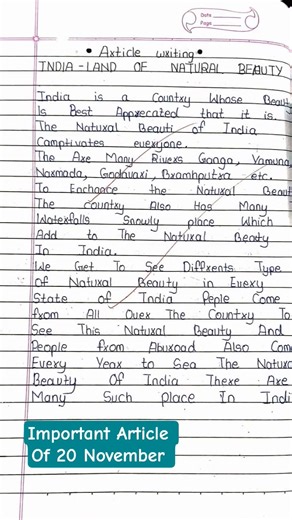 Date
Page
• Article writing •
INDIA - LAND OF NATURAL BEAUTY
India is a Country Whose Beauty
Is Best Apprecated that it is.
The Natural Beauti of India
Camptivates eueryone.
The Are Many Riuers Ganga, Yamuna,
Naxmada, Godhuaxi, Bxamhputxa etc.
To Enchance the Natural Beaut
The country Also Has Many
Waterfalls Snowly place Which
Add to The Natural Beaty
In India.
We Get To See Diffxents Type
of Natural Beauty in Euexy
State of India Peple Come
from All Ouex The Country To
See This Natural Beauty And
People from Abuxoad Also Com
Euexy Yeax to Sea The Natura
Beauty Of India Thexe Axe
Many Such place In Indi
Important Article
Of 20 November